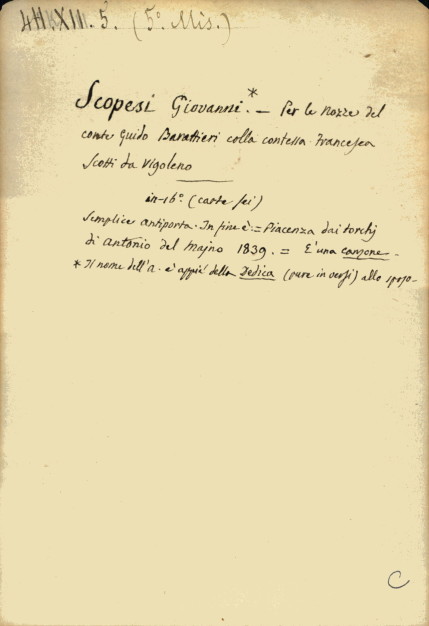 4H.XIII.5. (5º Mis.)
Scopesi Giovanni.* — Per le Nozze del
conte Guido Barattieri colla contessa Francesca
Scotti da Vigoleno
in-16º. (carte sei)
Semplice antiporta. In fine è: = Piacenza dai torchj
di Antonio del Majno 1839. = E' una canzone. -
* Il nome dell'a. è appiè della Dedica (pure in versi) allo sposo-
C